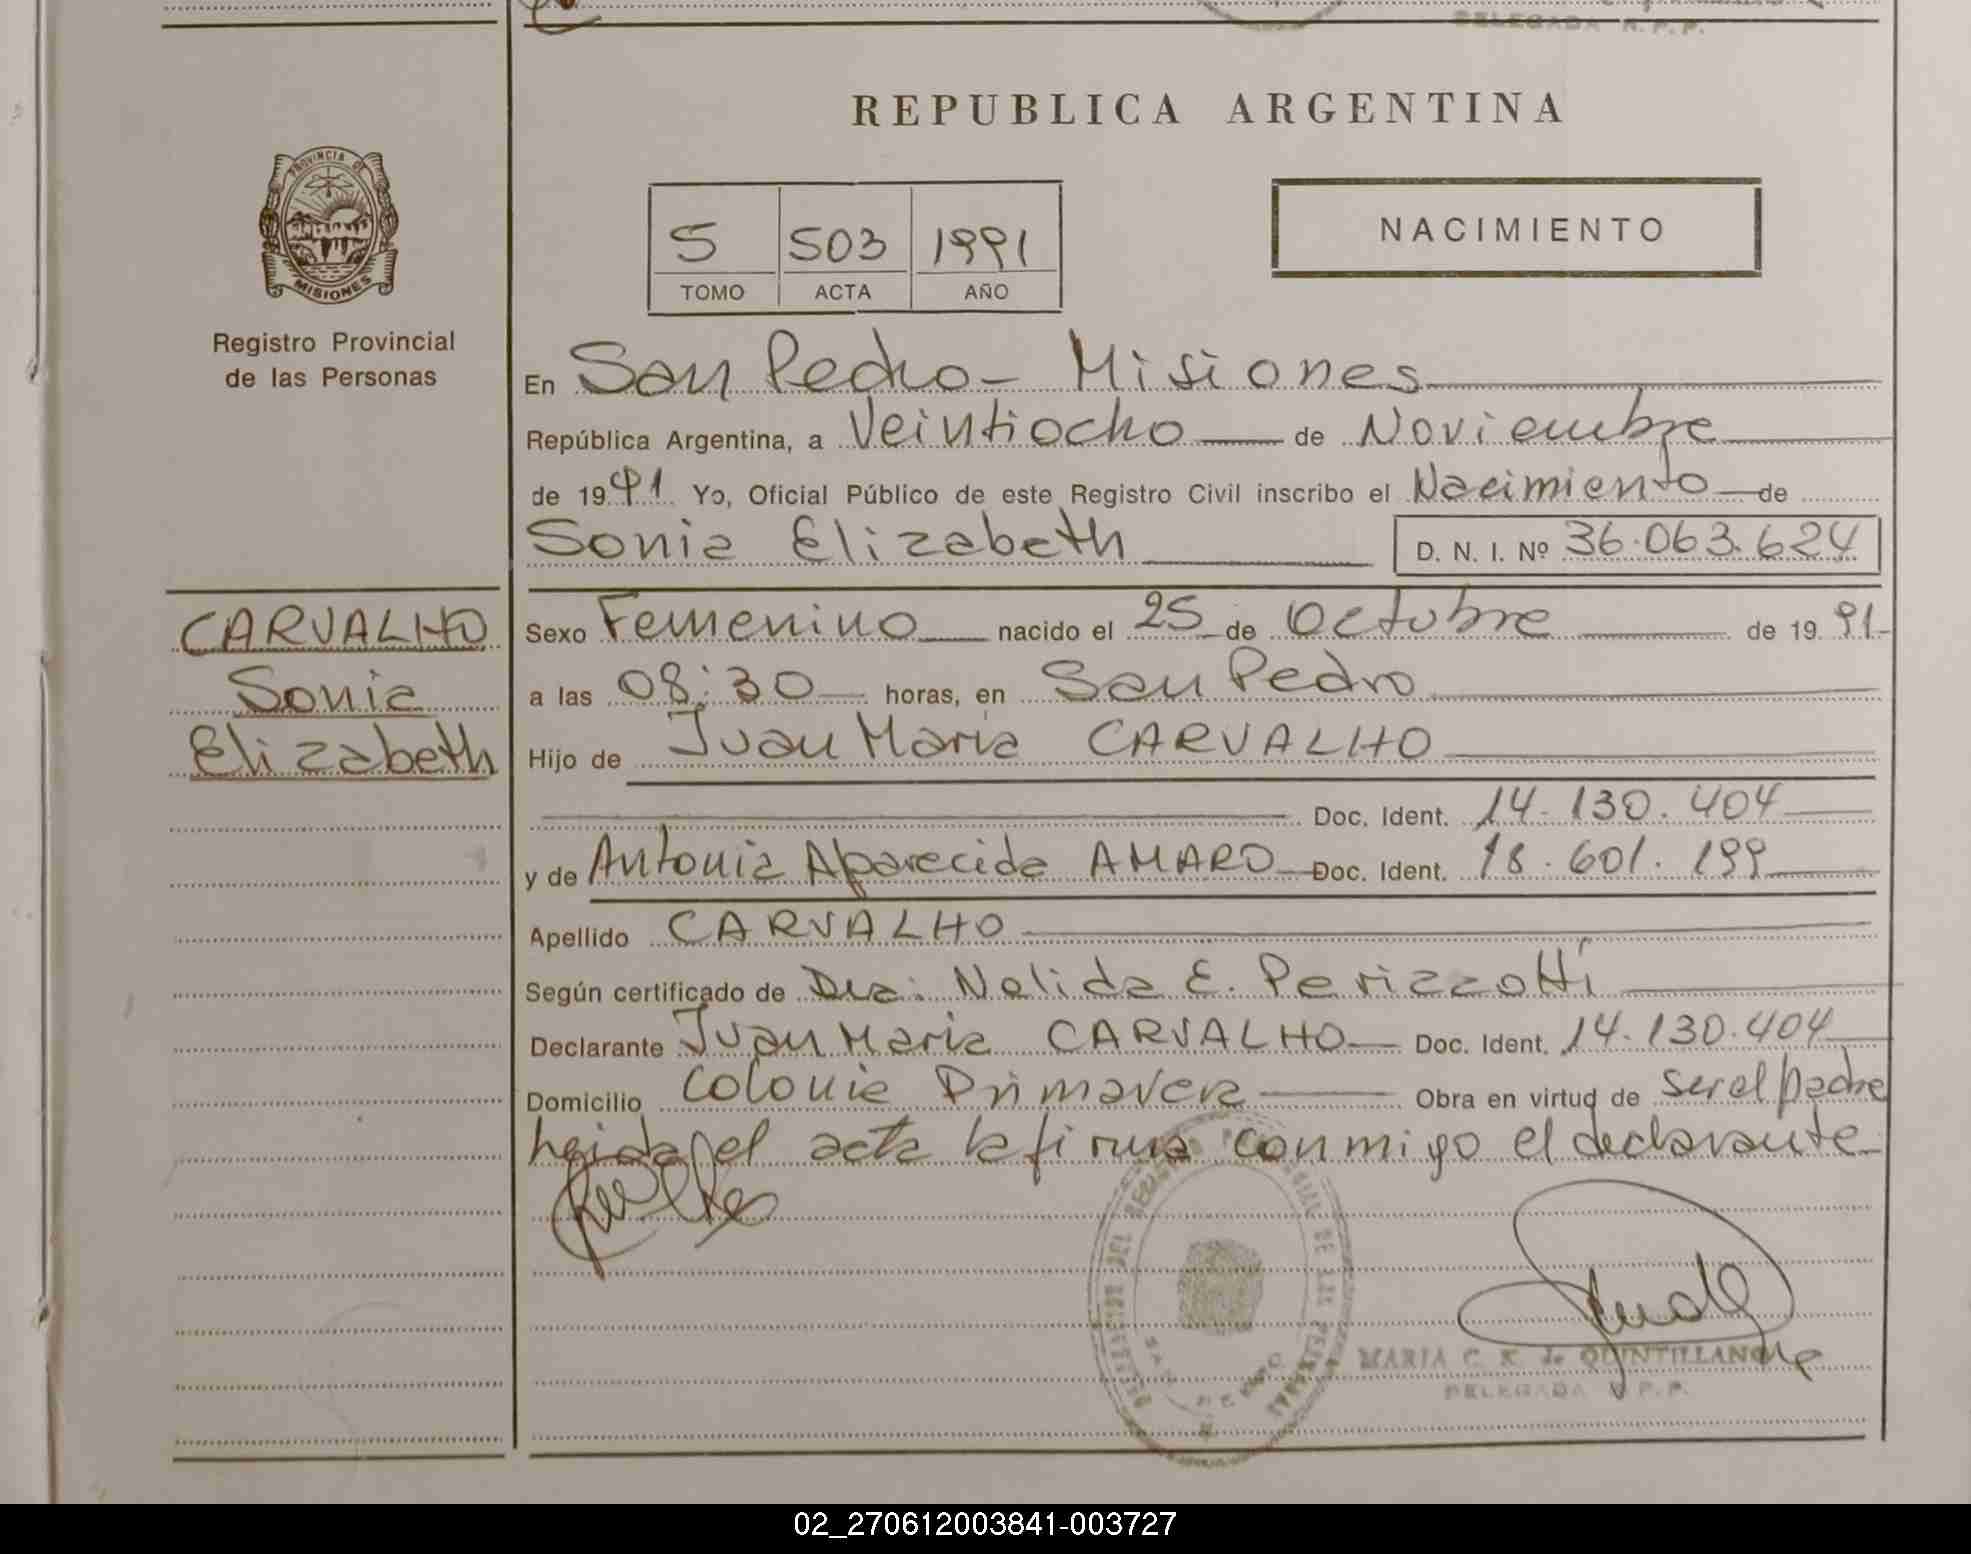 DELEGADA R.P.P.
REPUBLICA ARGENTINA
PROVINCIA DE
MISIONES
Registro Provincial
de las Personas
5 503 1991
TOMO ACTA AÑO
NACIMIENTO
En San Pedro - Misiones
República Argentina, a Veintiocho de Noviembre
de 1991 Yo, Oficial Público de este Registro Civil inscribo el Nacimiento de
Sonia Elizabeth D. N. I. Nº 36.063.624
CARVALHO
Sonia
Elizabeth
Sexo Femenino nacido el 25 de Octubre de 1991
a las 08:30 horas, en San Pedro
Hijo de Juan Maria CARVALHO
Doc. Ident. 14.130.404
y de Antonia Aparecida AMARO Doc. Ident. 18.601.199
Apellido CARVALHO
Según certificado de Dra: Nelida E. Perizzotti
Declarante Juan Maria CARVALHO Doc. Ident. 14.130.404
Domicilio Colonia Primavera Obra en virtud de ser el padre
leida el acta la firma conmigo el declarante
MARIA C. K. de QUINTILLAN
DELEGADA R.P.P.
02_270612003841-003727